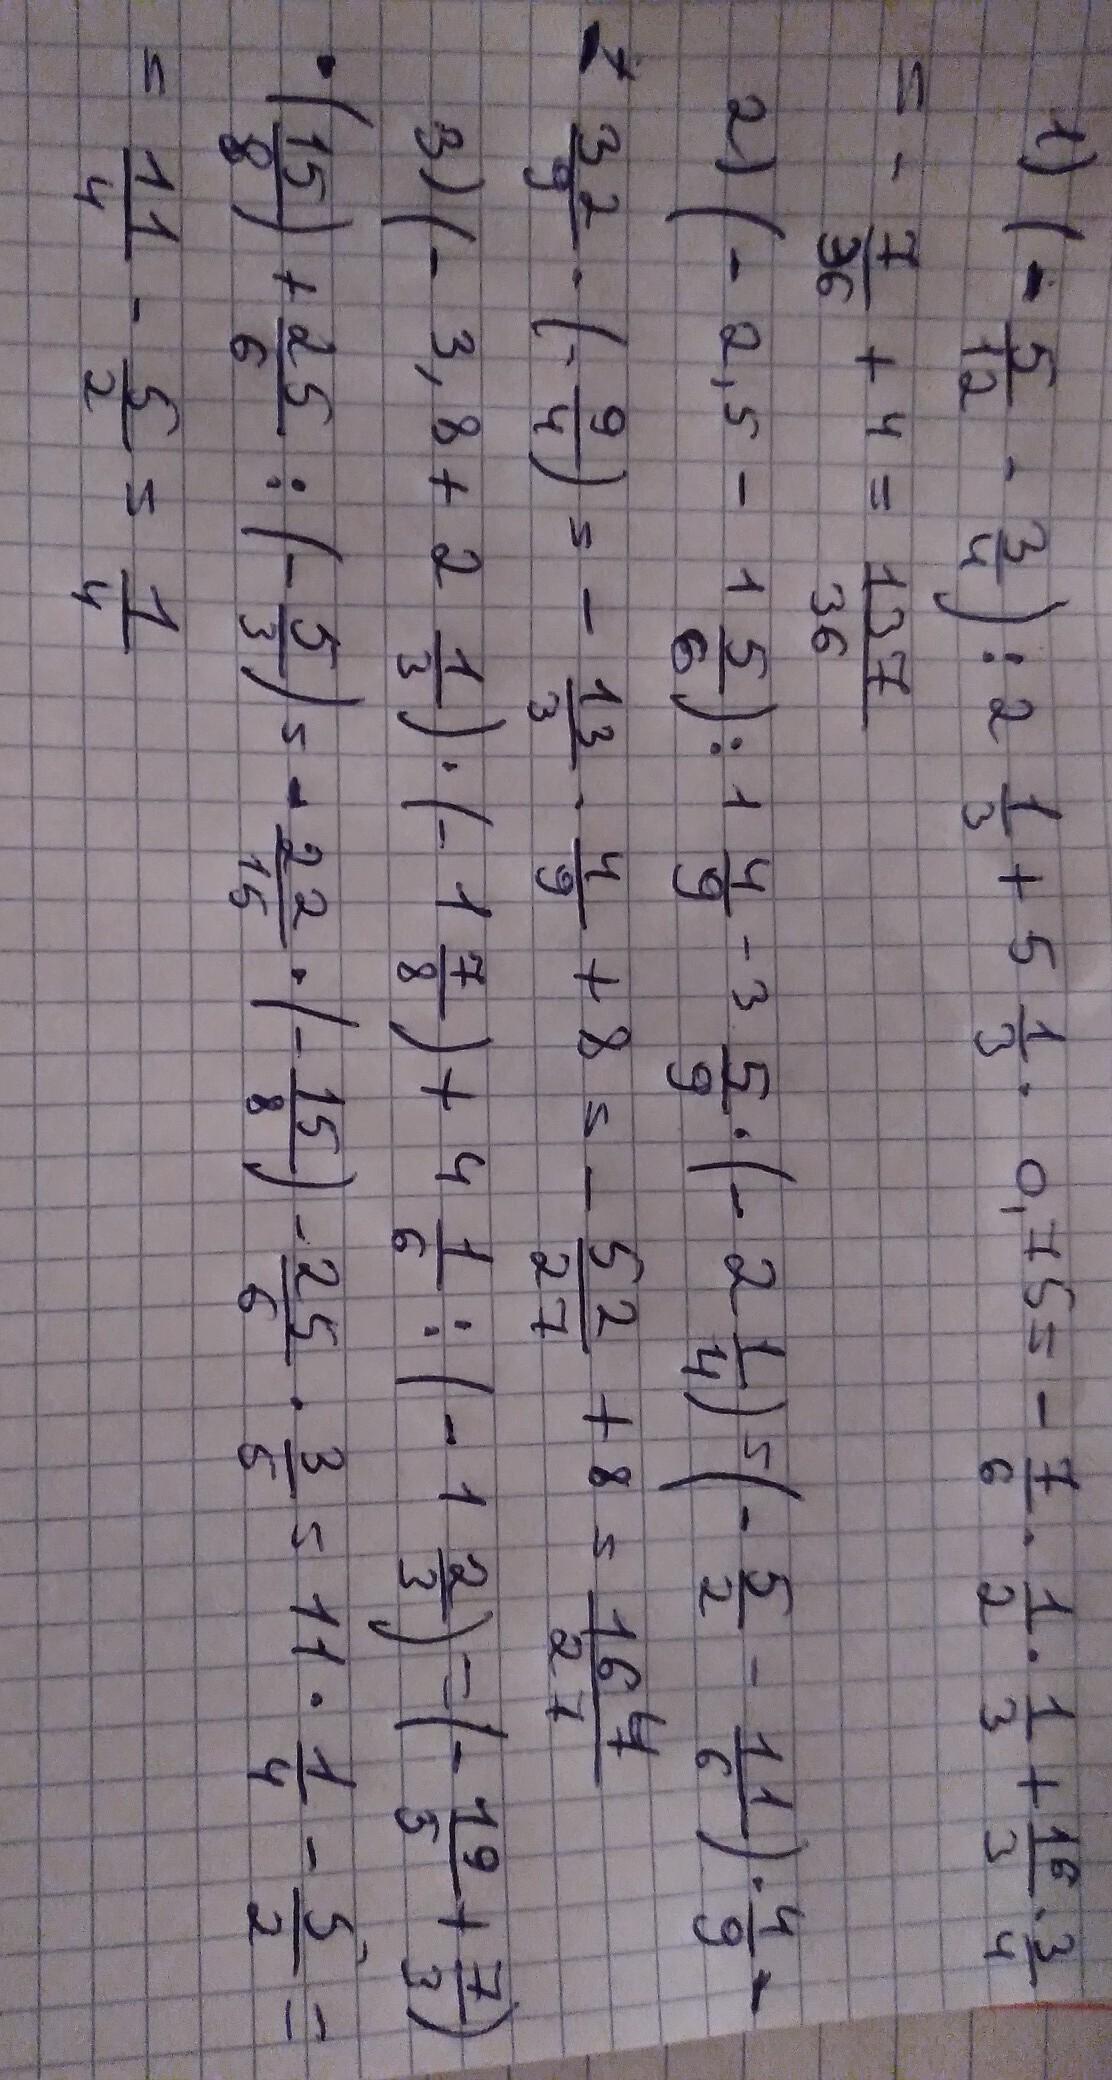 1) (- 5/12 - 3/4) : 2 1/3 + 5 1/3 · 0,75 = - 7/6 · 1/2 · 1/3 + 16/3 · 3/4
= - 7/36 + 4 = 137/36
2) (- 2,5 - 1 5/6) : 1 4/9 - 3 5/9 · (- 2 1/4) = (- 5/2 - 11/6) · 4/9 -
- 32/9 · (- 9/4) = - 13/3 · 4/9 + 8 = - 52/27 + 8 = 164/27
3) (- 3,8 + 2 1/3) · (- 1 7/8) + 4 1/6 : (- 1 2/3) = (- 19/5 + 7/3)
· (15/8) + 25/6 : (- 5/3) = - 22/15 · (- 15/8) - 25/6 · 3/5 = 11 · 1/4 - 5/2 =
= 11/4 - 5/2 = 1/4